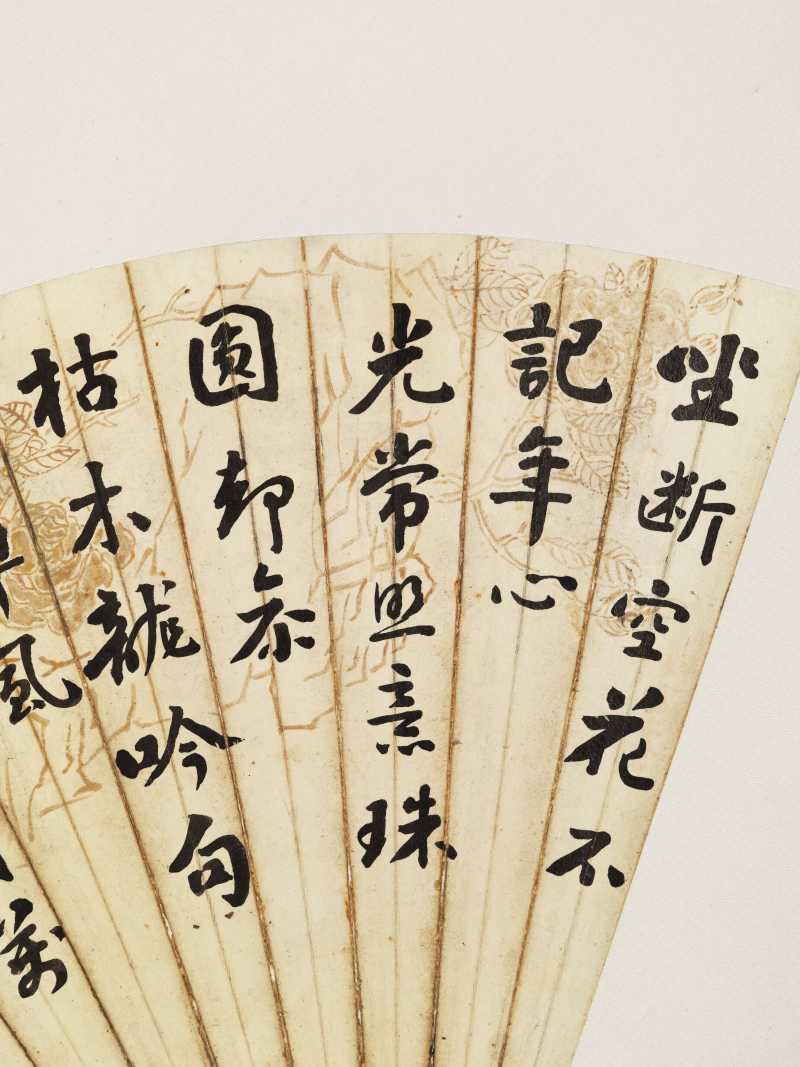 坐断空花不
記年心
光常照意珠
圓却叅
枯木龍吟句
風
萬